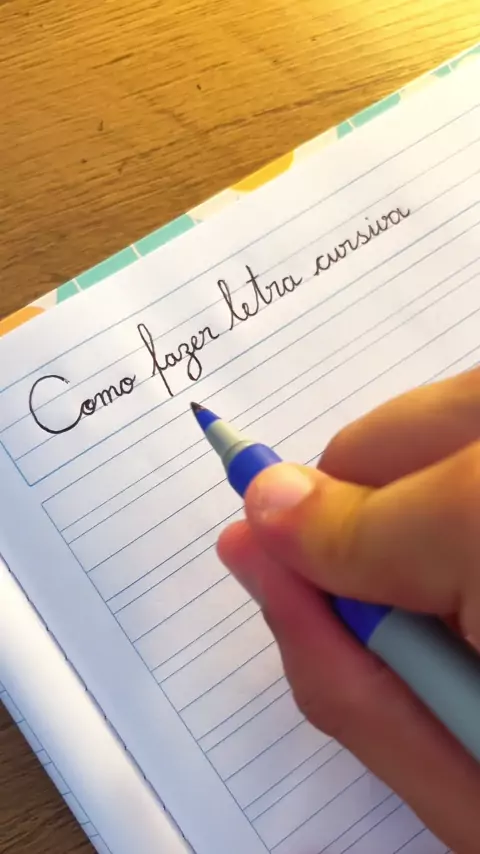 Como fazer letra cursiva